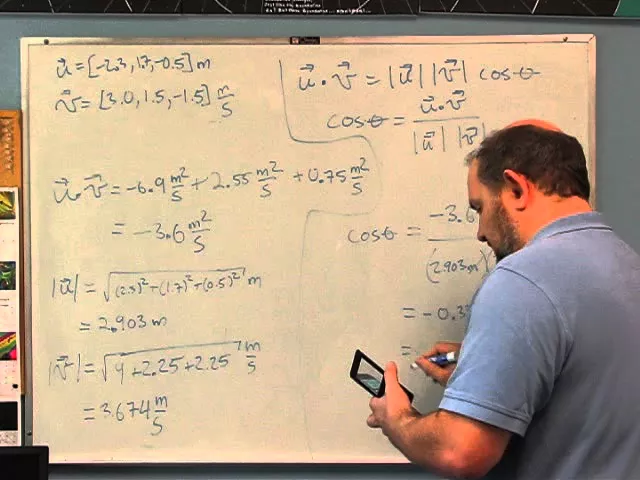 u⃗ = [-2.3, 1.7, -0.5] m
v⃗ = [3.0, 1.5, -1.5] m/s
u⃗ · v⃗ = -6.9 m²/s + 2.55 m²/s + 0.75 m²/s
= -3.6 m²/s
|u⃗| = √((2.3)² + (1.7)² + (0.5)²) m
= 2.903 m
|v⃗| = √(9 + 2.25 + 2.25) m/s
= 3.674 m/s
u⃗ · v⃗ = |u⃗| |v⃗| cosθ
cosθ = u⃗ · v⃗ / |u⃗| |v⃗|
cosθ = -3.6 / (2.903 m)
= -0.33
=